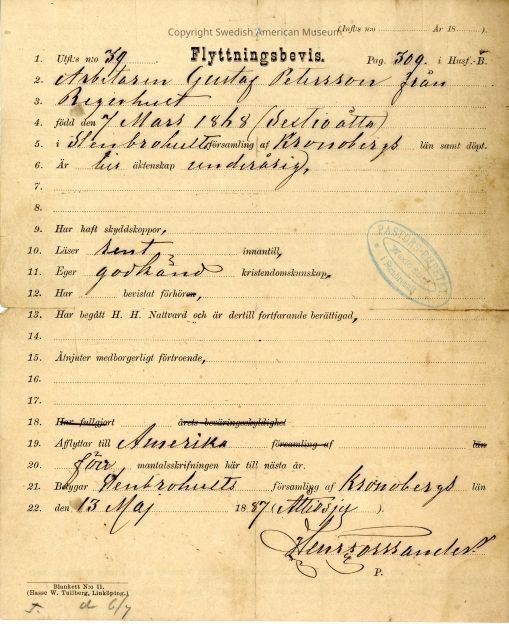 Copyright Swedish American Museum
(Infl:s n:o År 18 ).
1. Utfl:s n:o 39 Flyttningsbevis. Pag. 309. i Husf.-B.
2. Arbetaren Gustaf Petersson från
3.
4. född den 7 Mars 1868 (Sextioåtta)
5. i Stenbrohults församling af Kronobergs län samt döpt.
6. Är till äktenskap underårig,
7.
8.
9. Har haft skyddskoppor,
10. Läser rent innantill,
11. Eger godkänd kristendomskunskap,
12. Har bevistat förhören,
13. Har begått H. H. Nattvard och är dertill fortfarande berättigad,
14.
15. Åtnjuter medborgerligt förtroende,
16.
17.
18. Har fullgjort årets beväringsskyldighet
19. Afflyttar till Amerika församling af län
20. före mantalsskrifningen här till nästa år.
21. Betygar Stenbrohults församling af Kronobergs län
22. den 13 Maj 1887 (Åttiosju).
P.
Blankett N:o 11.
(Hasse W. Tullberg, Linköping.)